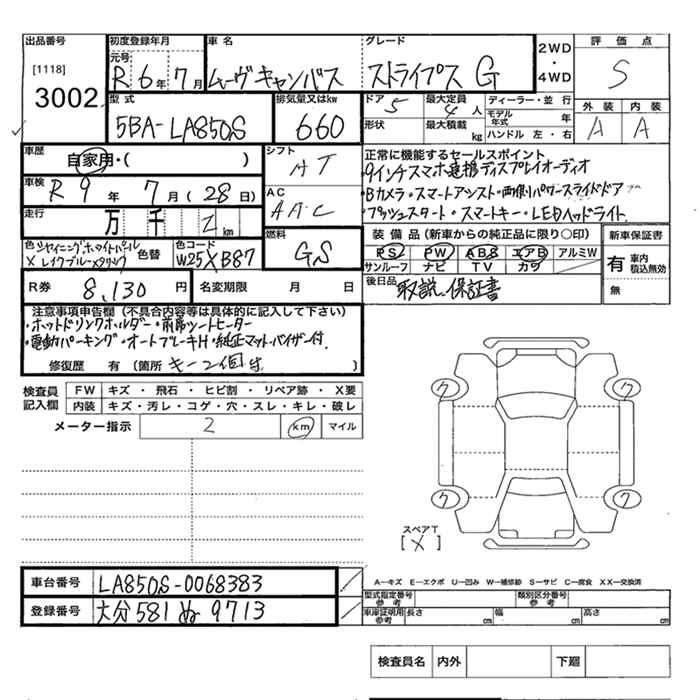 出品番号 初度登録年月 車名 グレード 2WD・4WD 評価点
[1118] 元号
3002 R6年7月 ムーヴキャンバス ストライプス G S
型式 排気量又はkw ドア 5 最大定員 4人 ディーラー・並行 外装 内装
5BA-LA850S 660 形状 最大積載 kg モデル年式 年 A A
ハンドル 左・右
車歴 自家用・( ) シフト AT 正常に機能するセールスポイント
・9インチスマホ連携ディスプレイオーディオ
車検 R9年7月(28日) AC AAC ・Bカメラ・スマートアシスト・両側パワースライドドア
走行 万千2km ・プッシュスタート・スマートキー・LEDヘッドライト
色 シャイニングホワイトパール×レイクブルーメタリック 色替 色コード W25XB87 燃料 GS 装備品(新車からの純正品に限り○印) 新車保証書
PS PW ABS エアB アルミW 有 車内積込無効
サンルーフ ナビ TV カワ 無
R券 8,130円 名変期限 月 日 後日品 取説、保証書
注意事項申告欄(不具合内容等は具体的に記入して下さい)
・ホットドリンクホルダー・前席シートヒーター
・電動パーキング・オートブレーキH・純正マット・バイザー付
修復歴 有(箇所 キー2個 )
検査員記入欄 FW キズ・飛石・ヒビ割・リペア跡・X要
内装 キズ・汚レ・コゲ・穴・スレ・キレ・破レ
メーター指示 2 km マイル
7 7
7 7
スペアT
[X]
車台番号 LA850S-0068383
登録番号 大分581 ぬ 9713
A—キズ E—エクボ U—凹み W—補修跡 S—サビ C—腐食 XX—交換済
型式指定番号 参考 類別区分番号 参考
車庫証明用 参考 長さ cm 幅 cm 高さ cm
検査員名 内外 下廻